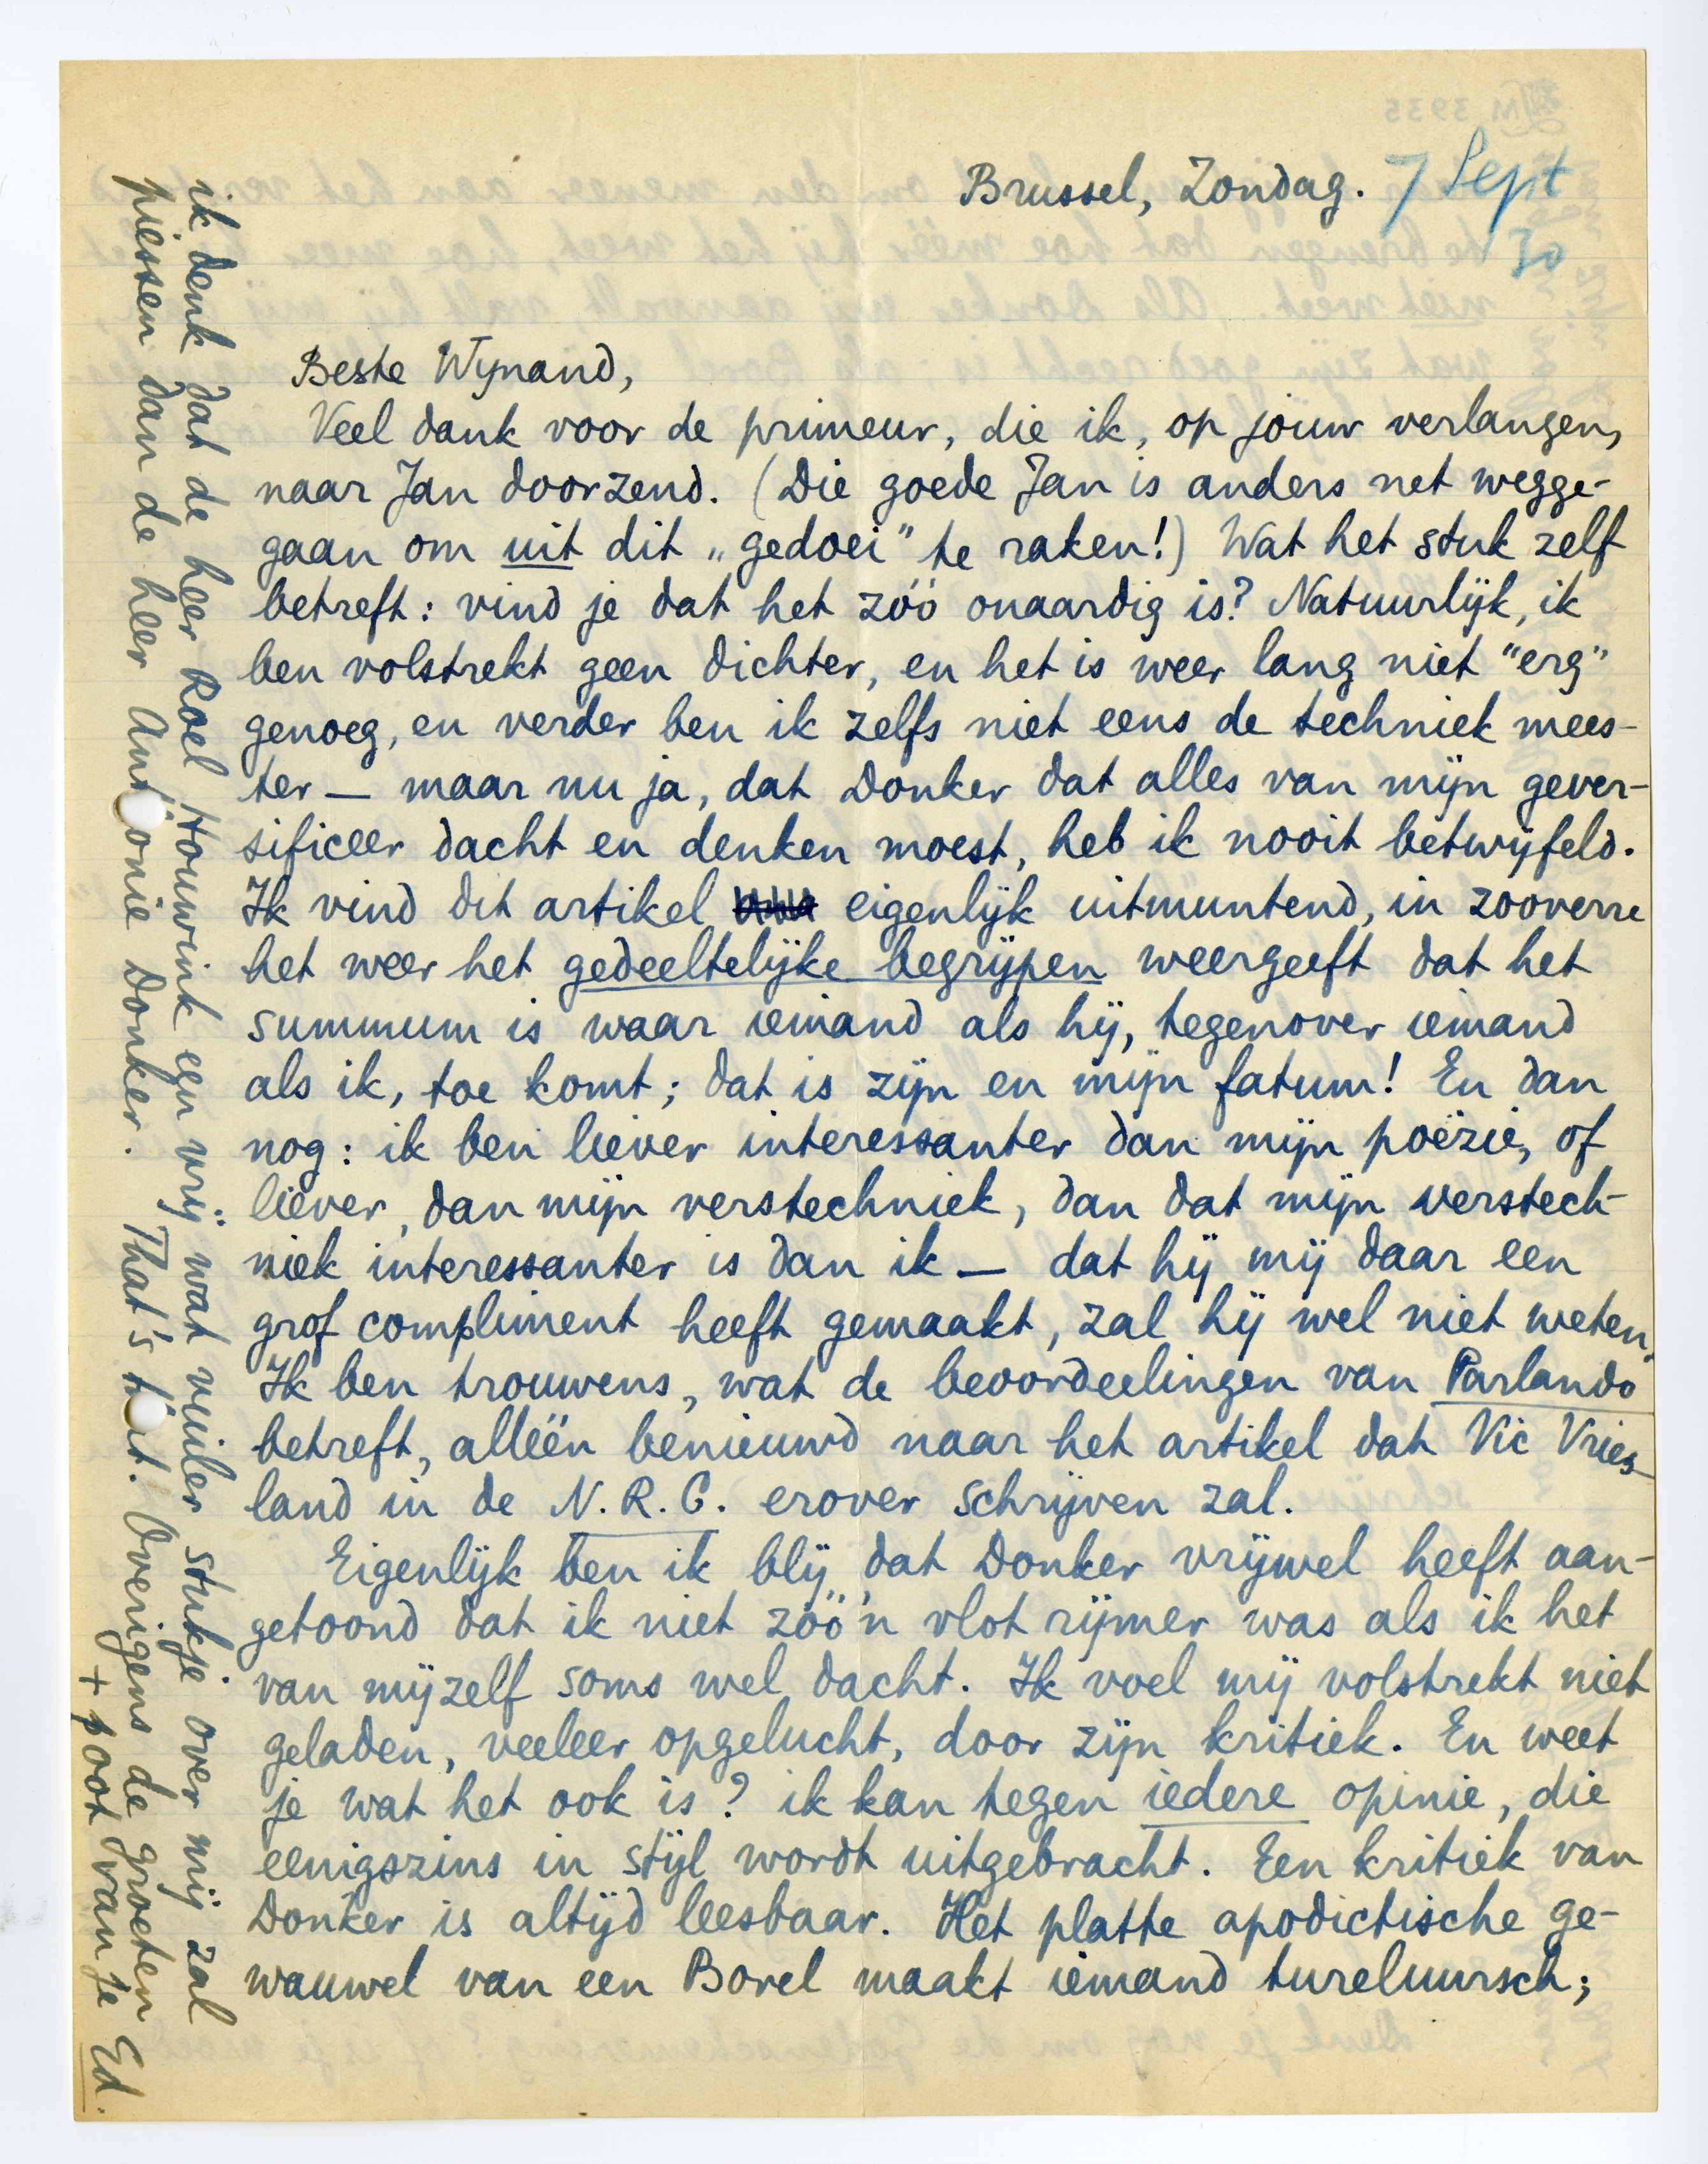 Brussel, Zondag. 7 Sept
30
Beste Wynand,
Veel dank voor de primeur, die ik, op jouw verlangen,
naar Jan doorzend. (Die goede Jan is anders net wegge-
gaan om uit dit „gedoei” te raken!) Wat het stuk zelf
betreft: vind je dat het zóó onaardig is? Natuurlijk, ik
ben volstrekt geen dichter, en het is weer lang niet "erg"
genoeg, en verder ben ik zelfs niet eens de techniek mees-
ter — maar nu ja, dat Donker dat alles van mijn gever-
sificeer dacht en denken moest, heb ik nooit betwijfeld.
Ik vind dit artikel eigenlijk uitmuntend, in zooverre
het weer het gedeeltelijke begrijpen weergeeft dat het
summum is waar iemand als hij, tegenover iemand
als ik, toe komt; dat is zijn en mijn fatum! En dan
nog: ik ben liever interessanter dan mijn poëzie, of
liever, dan mijn verstechniek, dan dat mijn verstech-
niek interessanter is dan ik — dat hij mij daar een
grof compliment heeft gemaakt, zal hij wel niet weten.
Ik ben trouwens, wat de beoordeelingen van Parlando
betreft, alléén benieuwd naar het artikel dat Vic Vries-
land in de N.R.C. erover schrijven zal.
Eigenlijk ben ik blij dat Donker vrijwel heeft aan-
getoond dat ik niet zóó'n vlot rijmer was als ik het
van mijzelf soms wel dacht. Ik voel mij volstrekt niet
geladen, veeleer opgelucht, door zijn kritiek. En weet
je wat het ook is? ik kan tegen iedere opinie, die
eenigszins in stijl wordt uitgebracht. Een kritiek van
Donker is altijd leesbaar. Het platte apodictische ge-
wauwel van een Borel maakt iemand tureluursch;
ik denk dat de heer Roel Houwink een vrij wat vuiler stukje over mij zal
piessen dan de heer Anthonie Donker. That's that. Overigens de groeten
+ poot van je Ed.
ZLM 3935